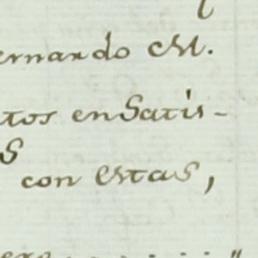 ernardo M.
tos en Satis-
S
con estas,